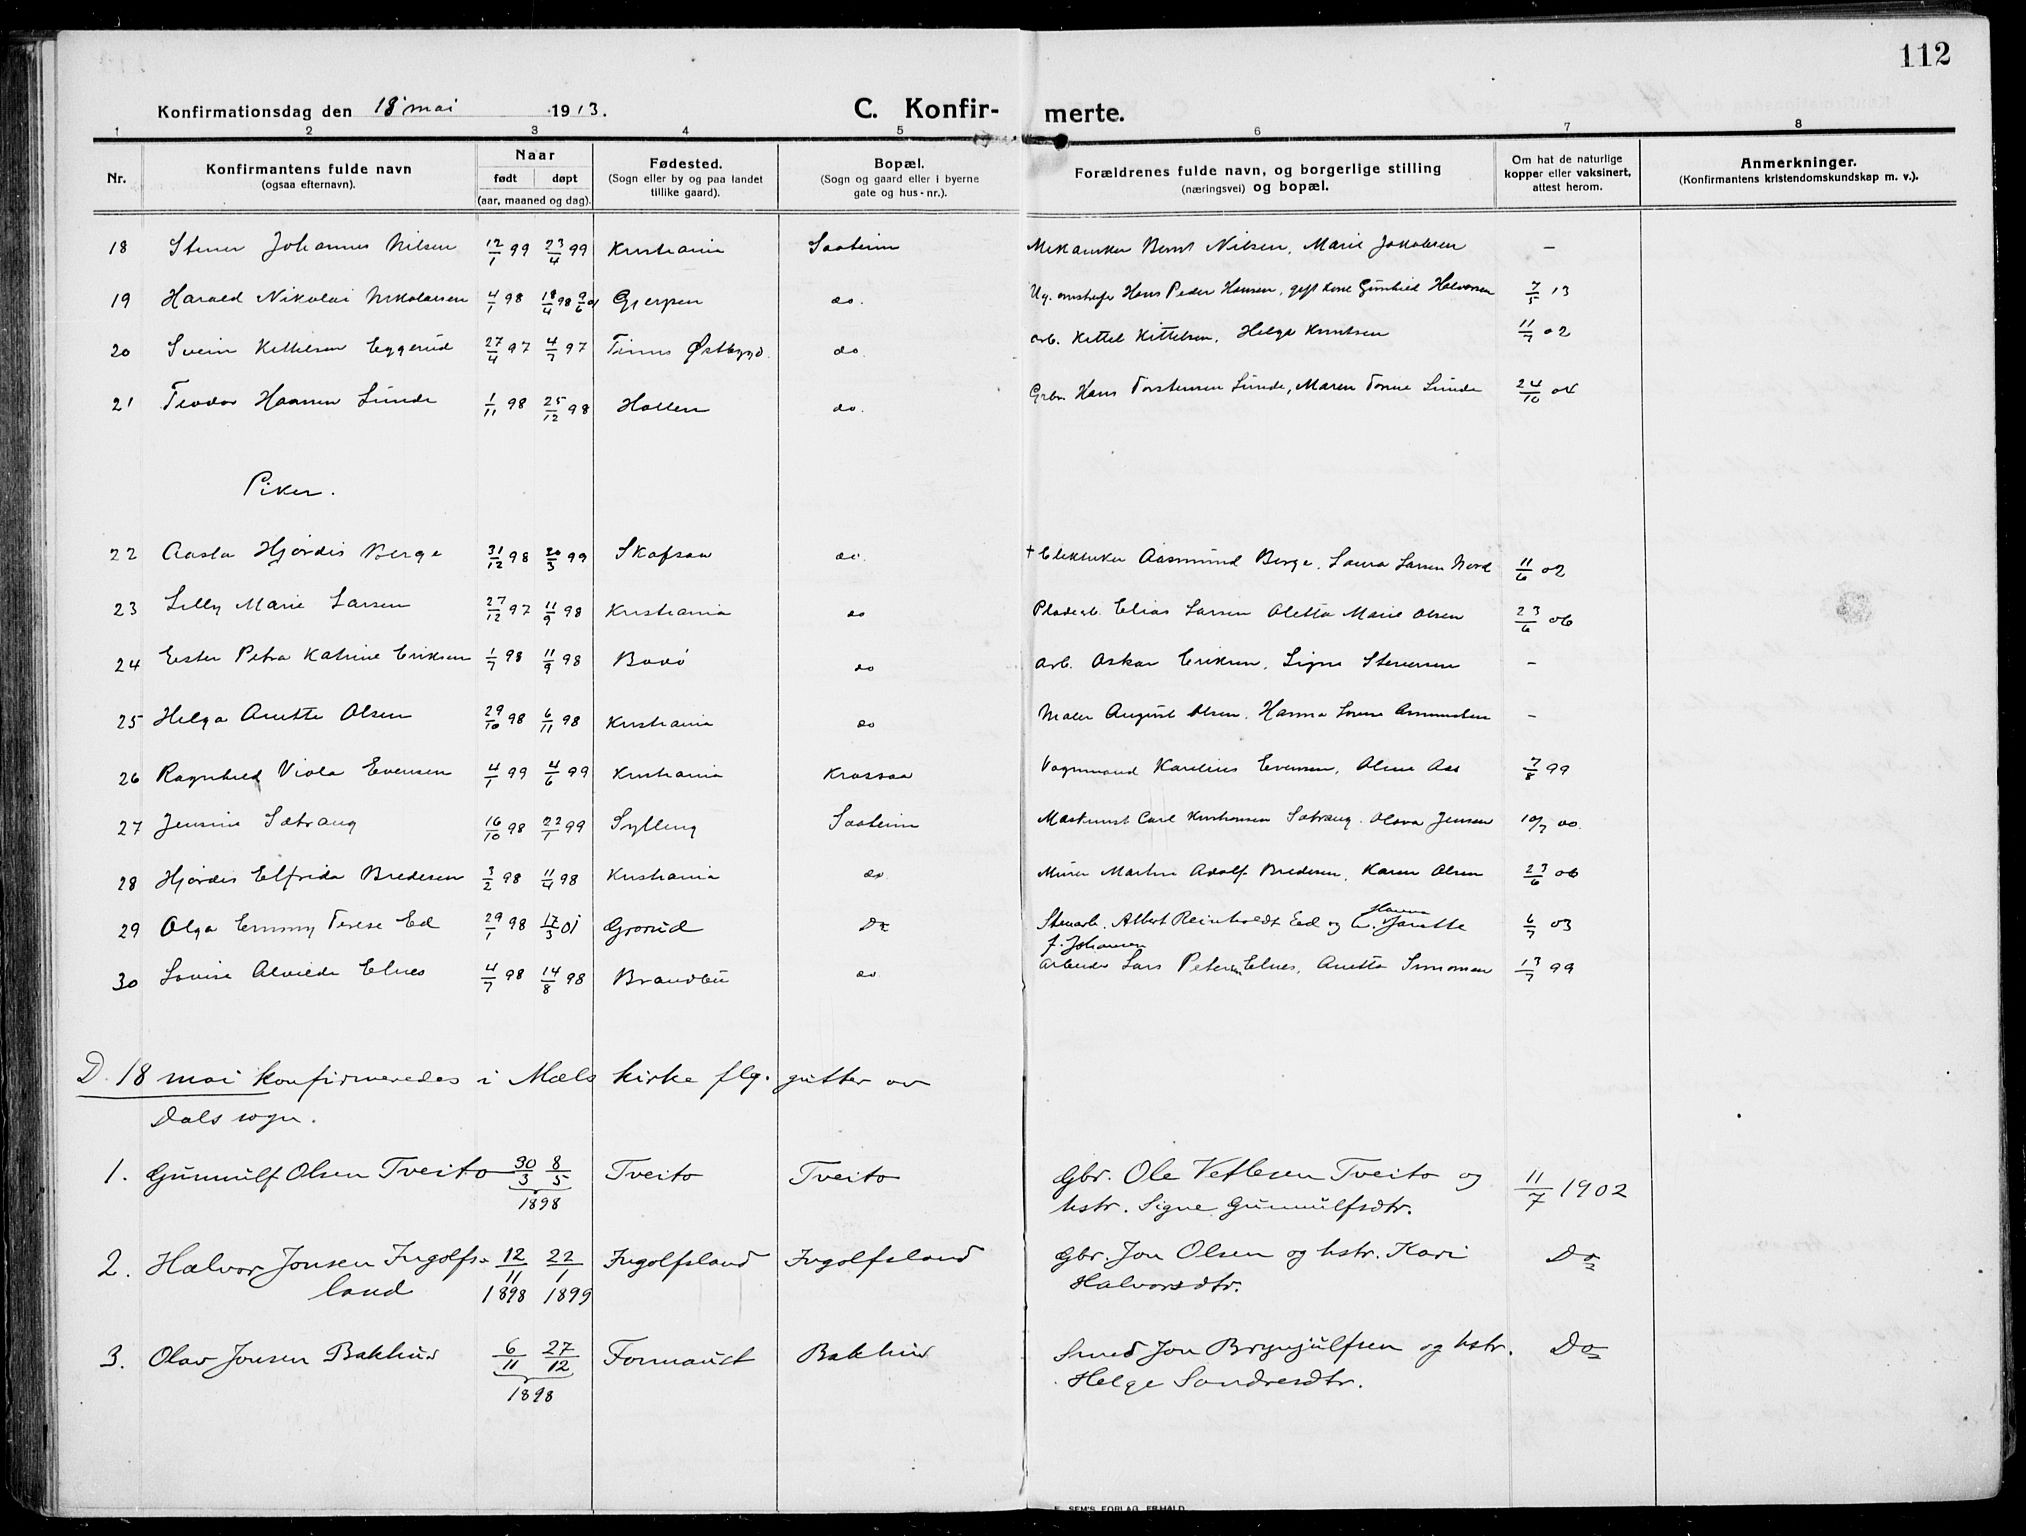 112
Konfirmationsdag den 18 mai 1913. C. Konfir- merte.
1 2 3 4 5 6 7 8
Nr. Konfirmantens fulde navn (ogsaa efternavn). Naar født døpt (aar, maaned og dag). Fødested. (Sogn eller by og paa landet tillike gaard). Bopæl. (Sogn og gaard eller i byerne gate og hus-nr.). Forældrenes fulde navn, og borgerlige stilling (næringsvei) og bopæl. Om hat de naturlige kopper eller vaksinert, attest herom. Anmerkninger. (Konfirmantens kristendomskundskap m. v.).
18 Stener Johannes Nilsen 12/1 99 23/4 99 Kristiania Saaheim Mekaniker Bernt Nilsen, Marie Jakobsen —
19 Harald Nikolai Nikolaisen 4/1 98 18/4 98 Gjerpen do. Hans Peder Hansen, Gunhild Halvorsen 7/5 13
20 Svein Kittelsen Eggerud 27/4 97 4/7 97 Tinns Østbygd. do. arb. Kittel Kittelsen, Helge Knutsen 11/7 02
21 Teodor Hansen Lunde 1/11 98 25/12 98 Hollen do. Gbr. Hans Torstensen Lunde, Maren Tomine Lunde 24/10 04
Piker.
22 Aasta Hjørdis Berge 31/12 98 20/3 99 Skafsaa do. † Elektriker Aasmund Berge, Laura Larsen Nord 11/6 02
23 Lilly Marie Larsen 27/12 97 11/9 98 Kristiania do Pladearb. Elias Larsen Oletta Marie Olsen 23/6 06
24 Ester Petra Katrine Eriksen 1/7 98 11/9 98 Bodø do arb. Oskar Eriksen, Signe Stenersen —
25 Helga Anette Olsen 29/10 98 6/11 98 Kristiania do Maler August Olsen, Hanna —
26 Ragnhild Viola Evensen 4/1 99 4/6 99 Kristiania Krossaa Vognmand Karelius Evensen, Oline Aas 7/8 99
27 Jensine Sætrang 16/10 98 22/1 99 Sylling Saaheim Maskinist Carl Kristiansen Sætrang. Olava Jensen 10/7 00.
28 Hjørdis Elfrida Bredesen 3/2 98 11/4 98 Kristiania do Murer Martin Adolf Bredesen, Karen Olsen 23/6 06
29 Olga Emmy Terese Ed 29/1 98 17/3 01 Grorud Do Stenarb. Albert Reinholdt Ed og Hanna Janette 6/7 03
f. Johansen
30 Lovise Alvilde Elnes 4/7 98 14/8 98 Brandbu do Arbeider Lars Petersen Elnes, Anetta Simonsen 13/7 99
D. 18 mai konfirmeredes i Mæls kirke flg. gutter av
Dals sogn.
1. Gunnulf Olsen Tveito 30/3 8/5 Tveito Tveito Gbr. Ole Vetlesen Tveito og 11/7 1902
1898 hstr. Signe Gunnulfsdtr.
2. Halvor Jonsen Ingolfs- 12/11 22/1 Ingolfsland Ingolfsland Gbr. Jon Olsen og hstr. Kari Do
land 1898 1899 Halvorsdtr.
3. Olav Jonsen Bakhus 6/11 27/12 Bakhus Smed Jon Brynjulfsen og hstr. Do
1898 Helge Sondresdtr.
E. SEM'S FORLAG, FR.HALD